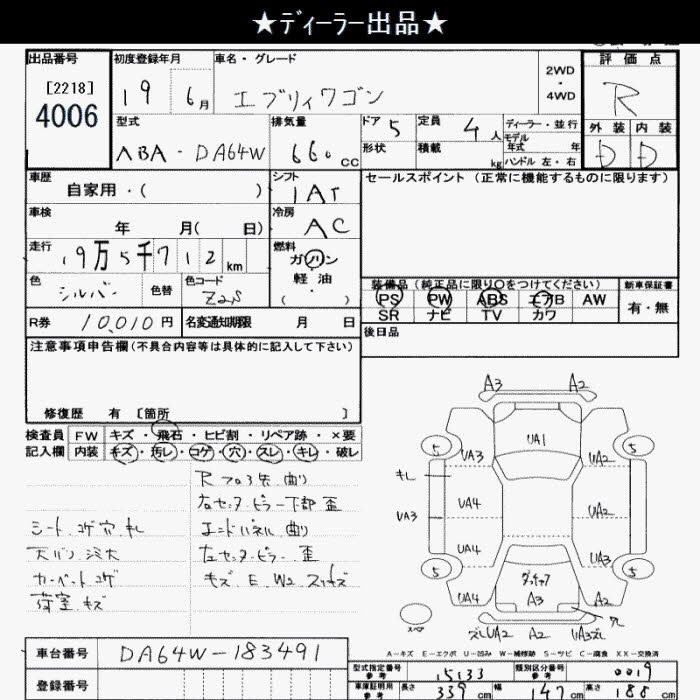 ★ディーラー出品★
出品番号 初度登録年月 車名・グレード 2WD・4WD 評価点
[2218] 19 6月 エブリィワゴン R
4006
型式 排気量 ドア 5 定員 4人 ディーラー・並行 外装 内装
ABA-DA64W 660cc 形状 積載 kg モデル年式 年 D D
ハンドル 左・右
車歴 シフト セールスポイント (正常に機能するものに限ります)
自家用・( ) 1AT
車検 冷房
年 月( 日) AC
走行 19万5千712km 燃料
ガソリン
軽油
( ・ )
色 シルバー 色替 色コード Z2S
装備品(純正品に限り○をつけてください) 新車保証書
PS PW ABS エアB AW 有・無
SR ナビ TV カワ
R券 10,010円 名変通知期限 月 日 後日品
注意事項申告欄(不具合内容等は具体的に記入して下さい)
修復歴 有 [箇所 ]
検査員 FW キズ・飛石・ヒビ割・リペア跡・×要
記入欄 内装 キズ・汚レ・コゲ・穴・スレ・キレ・破レ
右センターピラー下部 歪
シート コゲ穴 キレ エンドパネル 曲り
左センターピラー 歪
カーペット コゲ キズ E W2
荷室 キズ
A3 A2
5 UA1 5
UA3 UA2
キレ
UA3 UA4 UA2
UA4 UA3
5 5
UA4 A3 A2
スペア UA2 A2
A-キズ E-エクボ U-凹み W-補修跡 S-サビ C-腐食 XX-交換済
車台番号 DA64W-183491
登録番号
型式指定番号 参考 15133 類別区分番号 参考 0019
車庫証明用 参考 長さ 339cm 幅 147cm 高さ 188cm